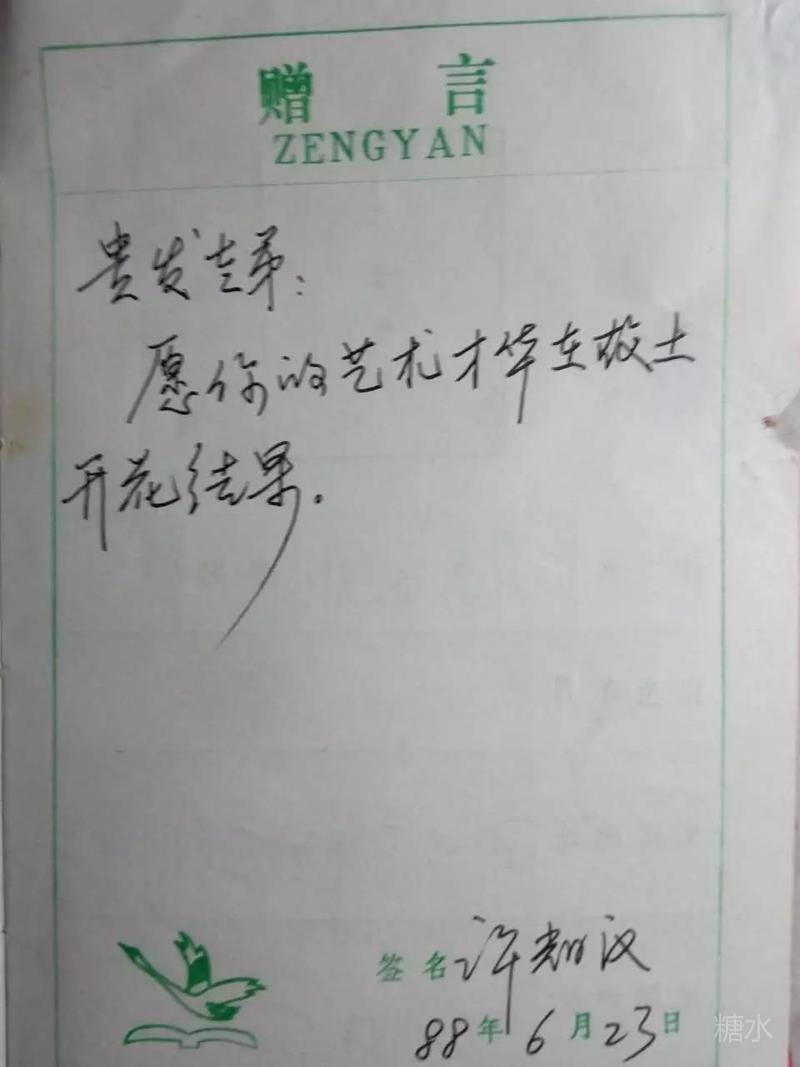 赠言
ZENGYAN
贵发老弟：
愿你的艺术才华在故土
开花结果。
签名 许 汉
88年6月23日
糖水